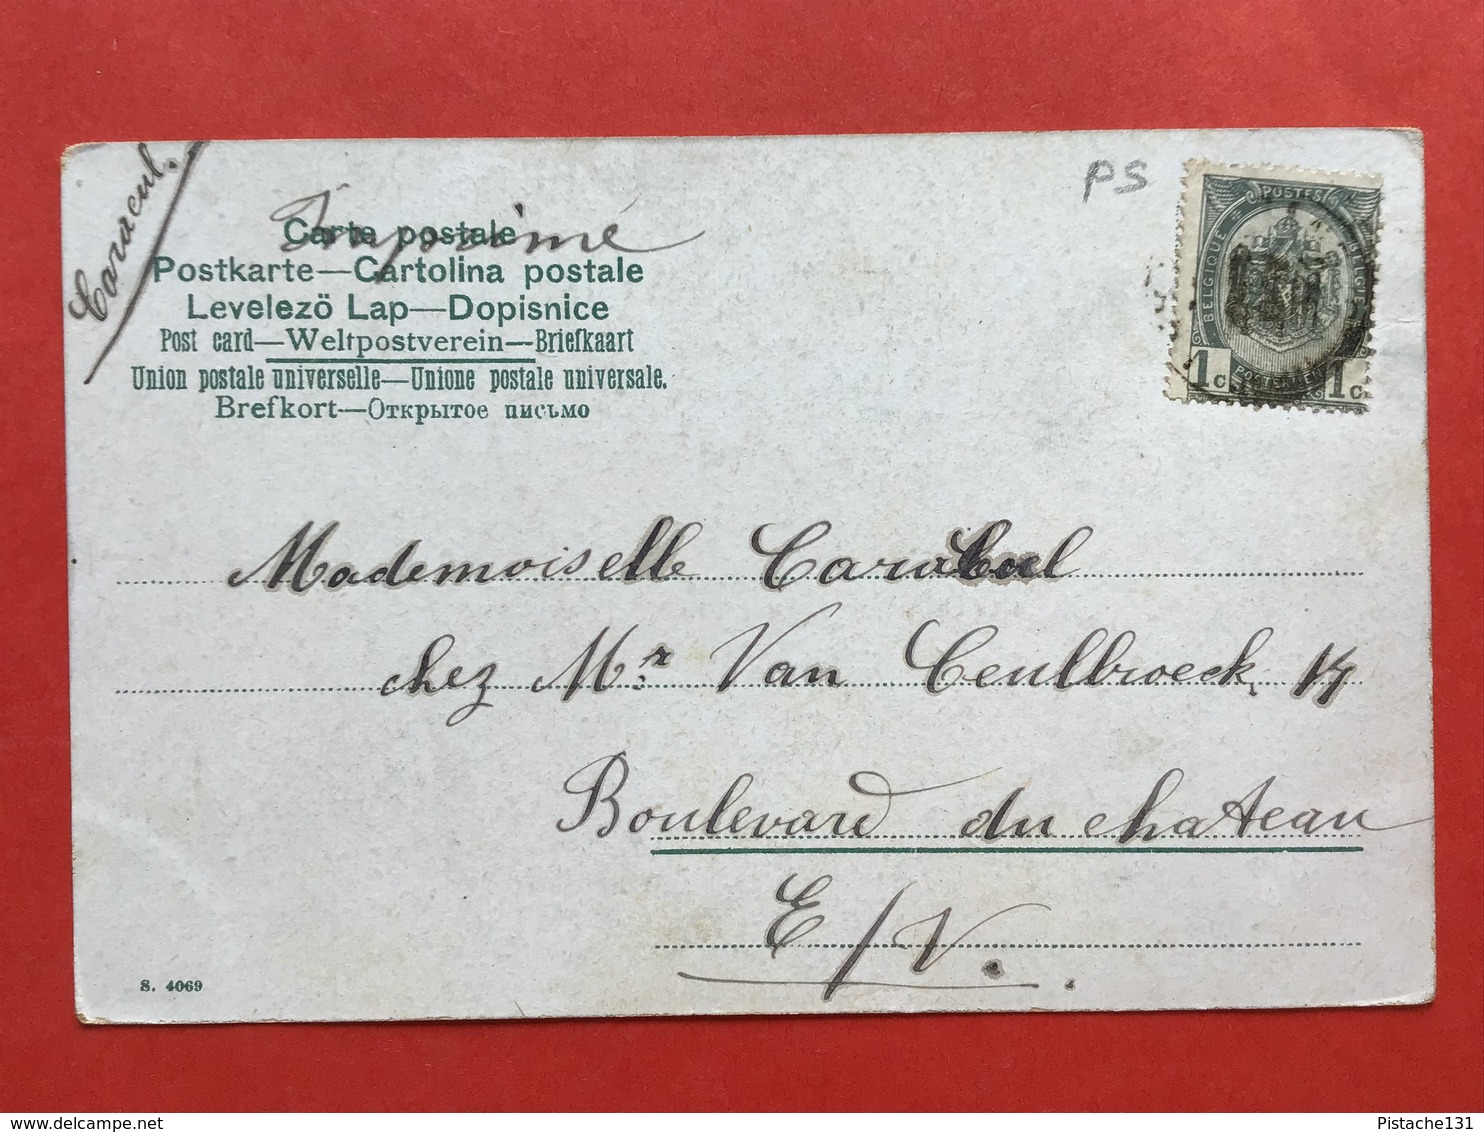 Caracul.
Imprimé
PS
Carte postale
Postkarte—Cartolina postale
Levelező Lap—Dopisnice
Post card—Weltpostverein—Briefkaart
Union postale universelle—Unione postale universale.
Brefkort—Открытое письмо
POSTES
BELGIQUE
1c 1c
Mademoiselle
chez Mr. Van Ceulbroeck 14
Boulevard du chateau
E/V.
S. 4069
delcampe.net
Pistache131